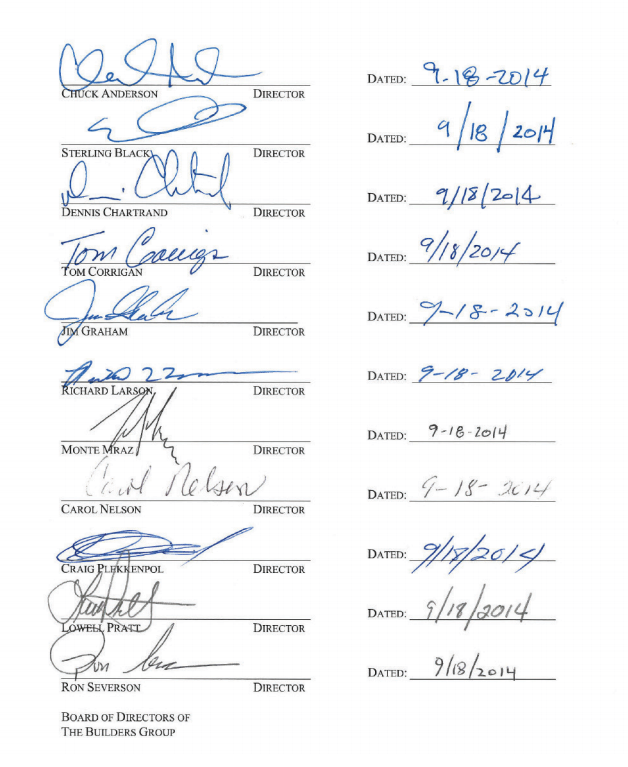 DATED: 9-18-2014
CHUCK ANDERSON DIRECTOR
DATED: 9/18/2014
STERLING BLACK DIRECTOR
DATED: 9/18/2014
DENNIS CHARTRAND DIRECTOR
Tom Corrigan DATED: 9/18/2014
TOM CORRIGAN DIRECTOR
DATED: 9-18-2014
JIM GRAHAM DIRECTOR
DATED: 9-18-2014
RICHARD LARSON, DIRECTOR
DATED: 9-18-2014
MONTE MRAZ DIRECTOR
Carol Nelson DATED: 9-18-2014
CAROL NELSON DIRECTOR
DATED: 9/18/2014
CRAIG PLEKKENPOL DIRECTOR
DATED: 9/18/2014
LOWELL PRATT DIRECTOR
Ron DATED: 9/18/2014
RON SEVERSON DIRECTOR
BOARD OF DIRECTORS OF
THE BUILDERS GROUP